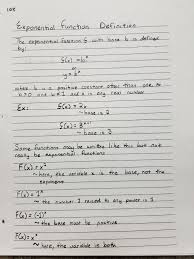 108
Exponential Function Definition
The exponential function f with base b is defined
by:
f(x) = bˣ
or
y = bˣ
where b is a positive constant other than one to
b>0 and b≠1 and x is any real number
Ex: f(x) = 2ˣ
~ base is 2
f(x) = 3ˣ⁺¹
~ base is 3
Some functions may be written like this but not
really be exponential functions
F(x) = x²
~ here, the variable x is the base, not the
exponent
F(x) = 1ˣ
~ the number 1 raised to any power is 1
F(x) = (-1)ˣ
~ the base must be positive
F(x) = xˣ
~ here, the variable is both